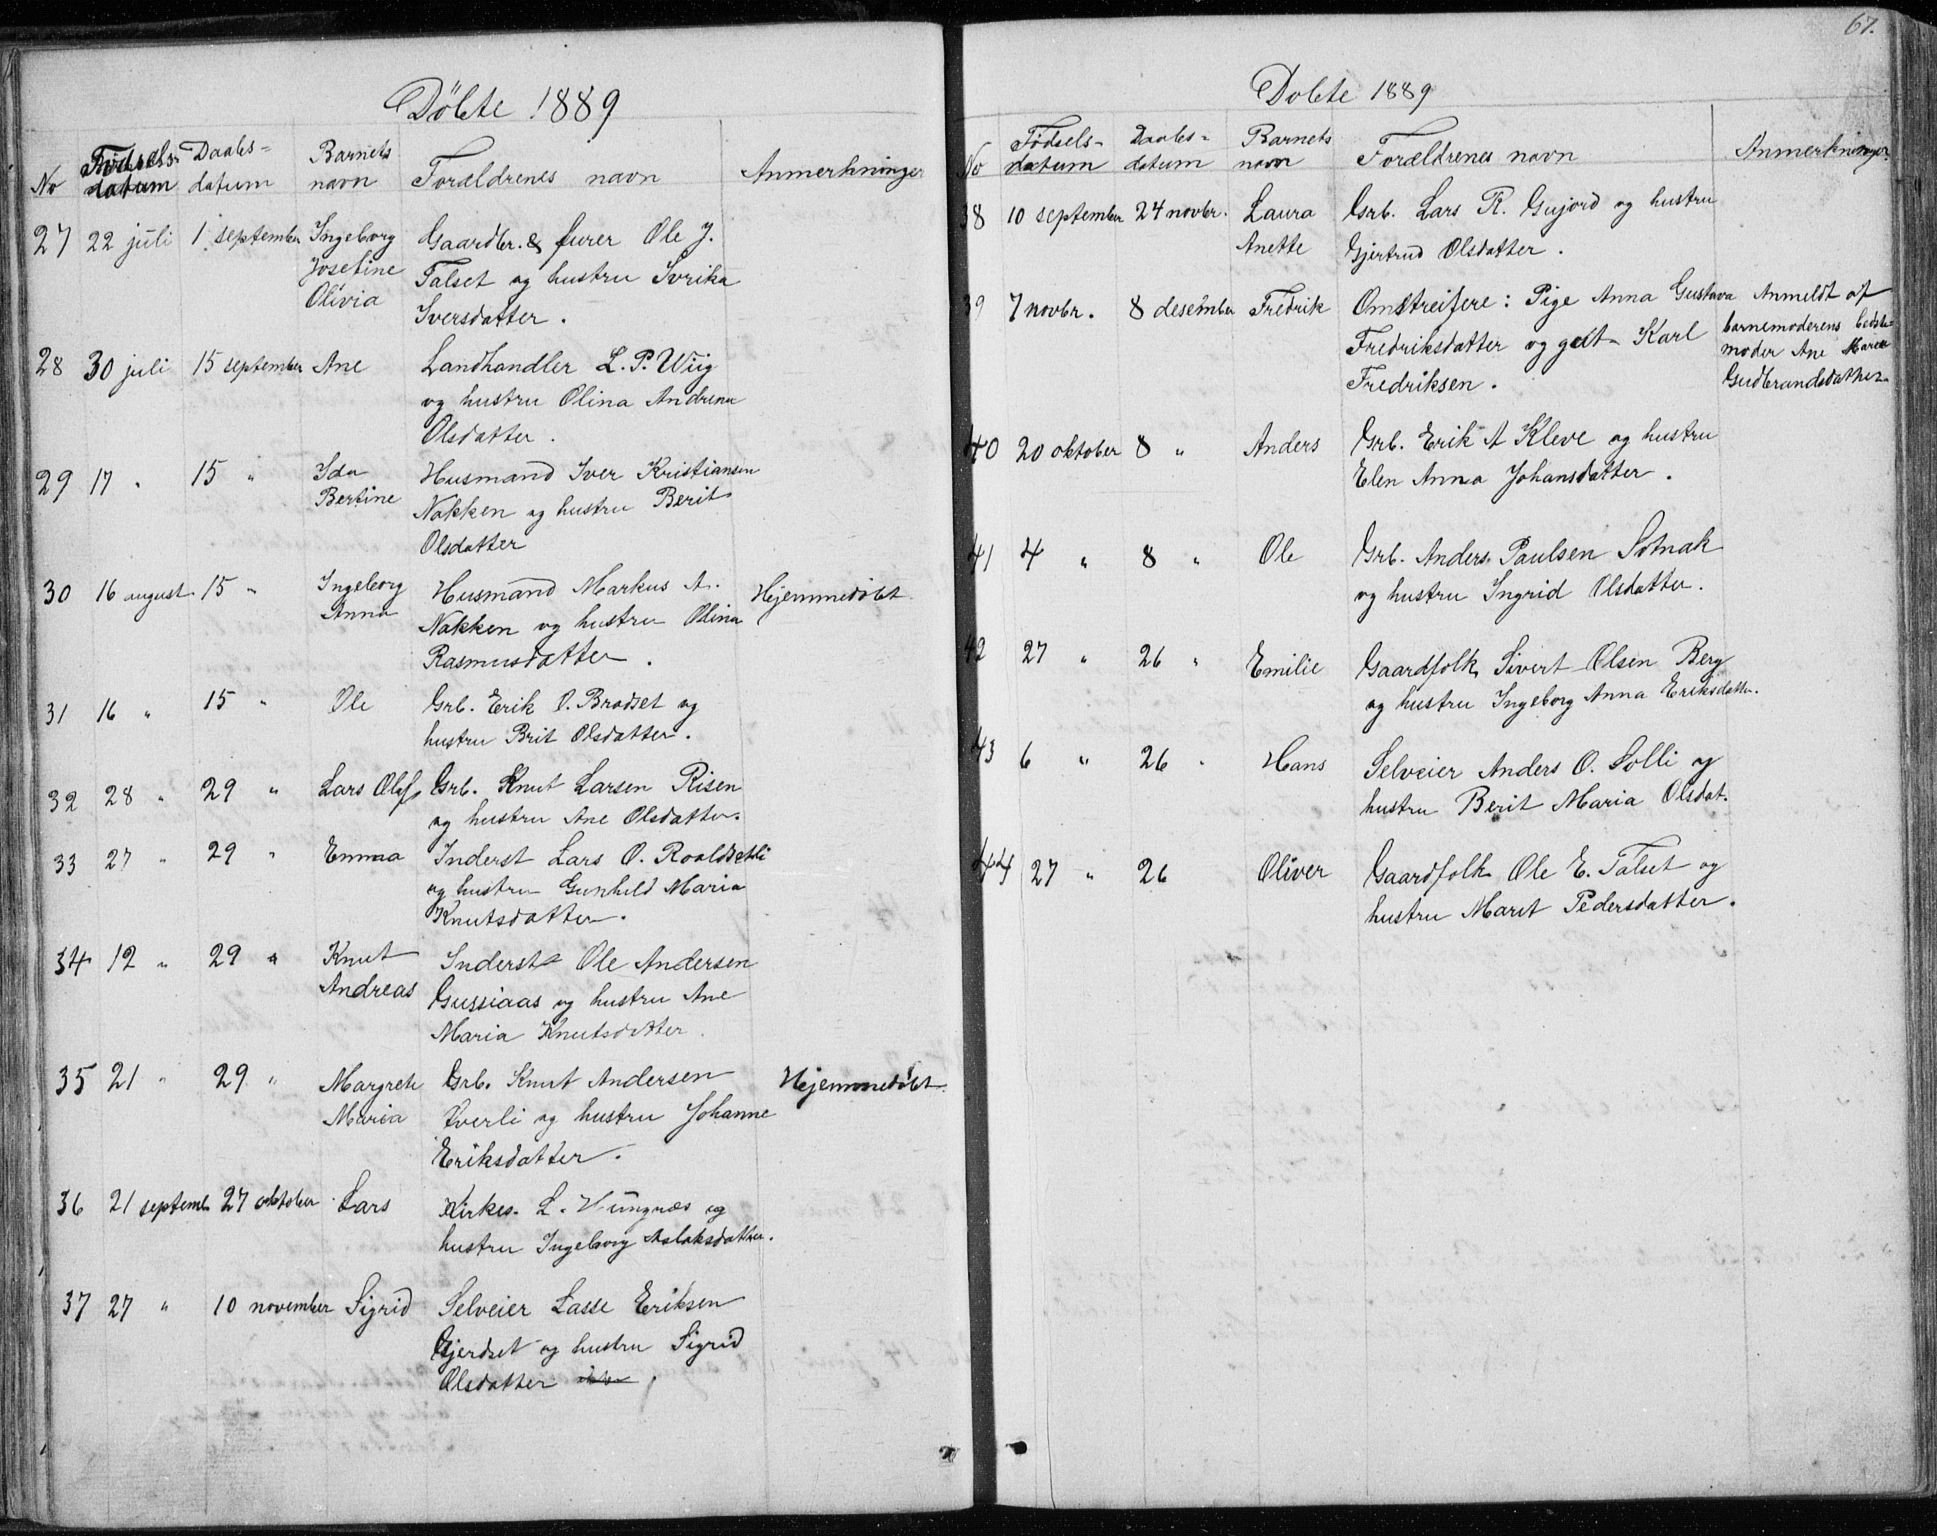 Döbte 1889
No Fødsels-datum Daabs-datum Barnets navn Forældrenes navn Anmerkninger
27 22 juli 1 september Ingeborg Gaardbr. & furer Ole J.
Josefine Talset og hustru
Olivia Iversdatter.
28 30 juli 15 september Ane Landhandler L. P. Wiig
og hustru Olina Andrina
Olsdatter.
29 17 " 15 " Ida Husmand Iver Kristiansen
Bertine Nakken og hustru Berit
Olsdatter
30 16 august 15 " Ingeborg Husmand Markus A. Hjemmedöbt
Anna Nakken og hustru Olina
Rasmusdatter.
31 16 " 15 " Ole Grb. Erik O. Bradset og
hustru Brit Olsdatter.
32 28 " 29 " Lars Olof Grb. Knut Larsen Risen
og hustru Ane Olsdatter.
33 27 " 29 " Emma Inderst Lars O. Roaldsetli
og hustru Gunhild Maria
Knutsdatter.
34 12 " 29 " Knut Inderst Ole Andersen
Andreas Gussiaas og hustru Ane
Maria Knutsdatter.
35 21 " 29 " Margrete Grb. Knut Andersen Hjemmedöbt.
Maria Tverli og hustru Johanne
Eriksdatter.
36 21 septemb. 27 oktober Lars Kirkes. L. Vungnæs og
hustru Ingeborg Aslaksdatter.
37 27 " 10 november Sigrid Selveier Lasse Eriksen
Gjerdset og hustru Sigrid
Olsdatter.
67.
Dobte 1889
No Fødsels-datum Daabs-datum Barnets navn Forældrenes navn Anmerkninger
38 10 september 24 novbr. Laura Grb. Lars R. Gujord og hustru
Anette Gjertrud Olsdatter.
39 7 novbr. 8 desember Fredrik Omstreifere: Pige Anna Gustava Anmeldt af
Fredriksdatter og gift Karl barnemoderens bedste-
Fredriksen. moder Ane Marea
Gudbrandsdatter.
40 20 oktober 8 " Anders Grb. Erik A Kleve og hustru
Elen Anna Johansdatter.
41 4 " 8 " Ole Grb. Anders Paulsen Sotnak
og hustru Ingrid Olsdatter.
42 27 " 26 " Emilie Gaardfolk Sivert Olsen Berg
og hustru Ingeborg Anna Eriksdatter.
43 6 " 26 " Hans Selveier Anders O. Solli og
hustru Berit Maria Olsdat.
44 27 " 26 Oliver Gaardfolk Ole E. Talset og
hustru Marit Pedersdatter.